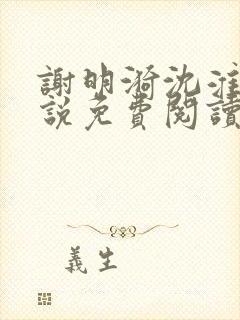 謝明漪沈淮
說免費閱讀
義生